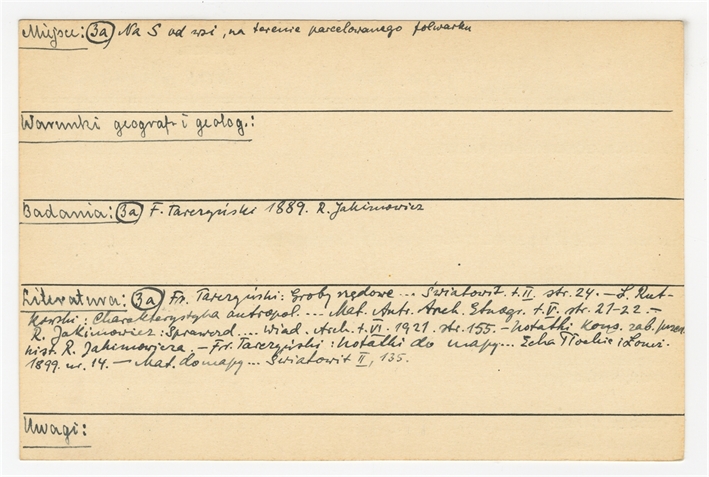 Miejsce: (3a) Na S od wsi, na terenie parcelowanego folwarku
Warunki geograf. i geolog.:
Badania: (3a) F. Tarczyński 1889. R. Jakimowicz
Literatura: (3a) Fr. Tarczyński: Groby rzędowe ... Światowit t. II, str. 24. – L. Rut-
kowski: Charakterystyka antropol. ... Mat. Antr. Arch. Etnogr. t. V. str. 21-22. –
R. Jakimowicz: Sprawozd. ... Wiad. Arch. t. VI. 1921. str. 155. – Notatki kons. zab. przed
hist. R. Jakimowicza. – Fr. Tarczyński: Notatki do mapy... Echa Płockie i Łomż.
1899. nr. 14. – Mat. do mapy... Światowit II, 135.
Uwagi: